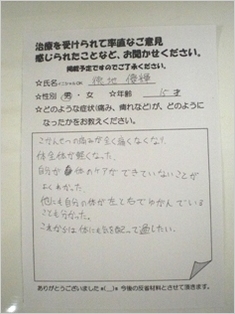 治療を受けられて率直なご意見
感じられたことなど、お聞かせください。
掲載予定ですのでご了承ください。
☆氏名
☆性別 男・女 ☆年齢 15才
☆どのような症状(痛み、痺れなど)が、どのように
なったかをお教えください。
こかんせつの痛みが全く痛くなくなり、
体全体が軽くなった。
自分が体のケアができていないことが
よくわかった。
他にも自分の体が左と右でゆがんでいる
ことも分かった。
これからは体にも気を配って過したい。
ありがとうございました *(__)* 今後の反省材料とさせて頂きます。